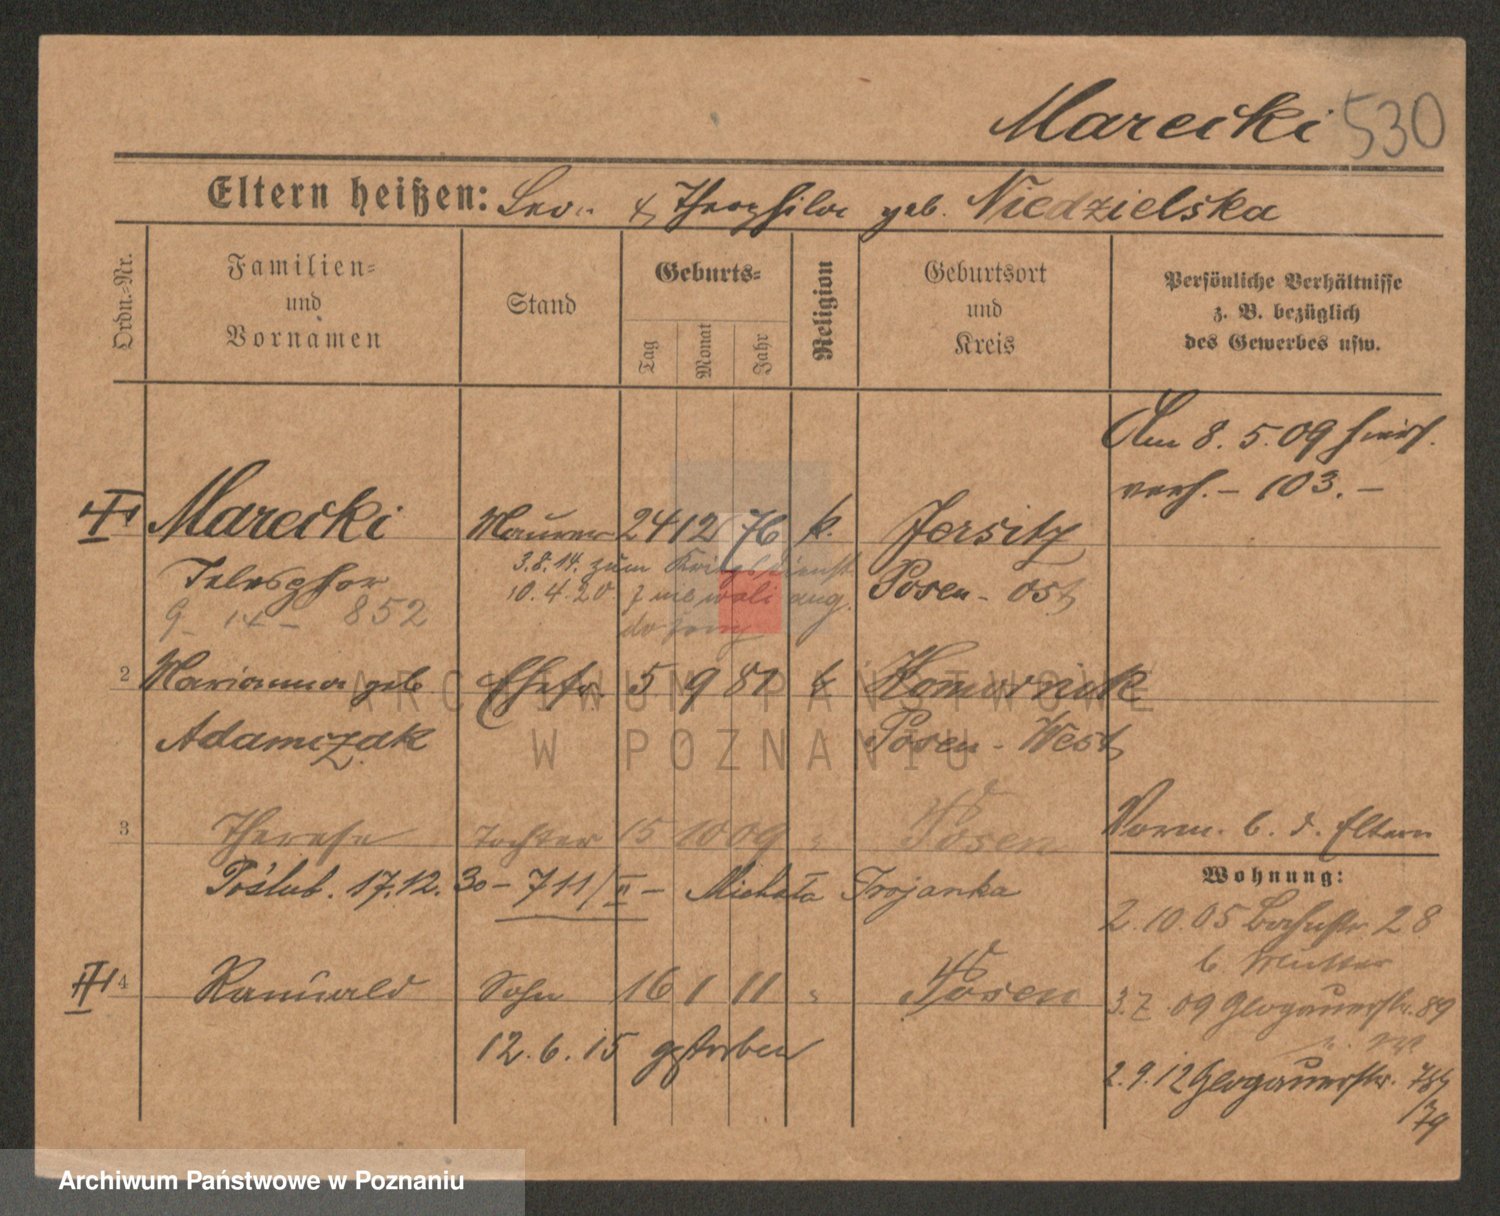 Marecki 530
Eltern heißen: Leon & Theophila geb. Niedzielska
Ordn.-Nr.
Familien- und Vornamen
Stand
Geburts-
Tag
Monat
Jahr
Religion
Geburtsort und Kreis
Persönliche Verhältnisse z. B. bezüglich des Gewerbes usw.
Am 8. 5. 09 hier
verh. – 103. –
I Marecki Maurer 24 12 76 k. Jersitz
Telesphor Posen - Ost
3.8.14. zum Kriegsdienst
10.4.20
852
2 Marianna geb. Ehefr. 5 9 81 k Komornik
Adamczak Posen - West
3 Therese Tochter 15 10 09 " Posen
Vorm. b. d. Eltern
Poślub. 17.12. 30 – 711/II – Michała Trojanka
Wohnung:
2.10.05 28
b Mutter
II 4 Romuald Sohn 16 1 11 " Posen
3.7.09 Glogauerstr. 89
12.6.15 gestorben
2.9.12 Glogauerstr.
79
ARCHIWUM PAŃSTWOWE
W POZNANIU
Archiwum Państwowe w Poznaniu